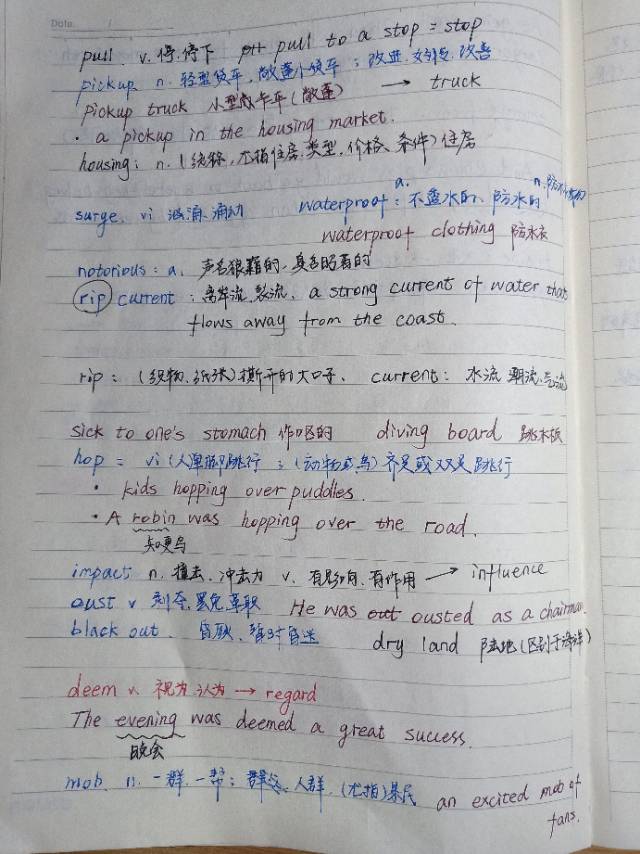 Date. /
pull v. 停.停下 pull to a stop = stop
pickup n. 轻型货车, 敞蓬小货车 ; 改进. 好转. 改善
pickup truck 小型敞卡车(敞蓬) → truck
· a pickup in the housing market.
housing: n. (统称, 尤指住房.类型, 价格、条件) 住房
surge. vi 汹涌.涌动 waterproof: a. 不透水的、防水的 n.
waterproof clothing 防水衣
notorious : a. 声名狼藉的. 臭名昭著的
rip current : 离岸流. 裂流. a strong current of water that
flows away from the coast.
rip : (织物.纸张) 撕开的大口子. current: 水流 潮流.气流
sick to one's stomach 作呕的 diving board 跳水板
hop = vi (人)单脚跳行 ; (动物或鸟) 齐足或双足跳行
· kids hopping over puddles.
· A robin was hopping over the road.
知更鸟
impact n. 撞击. 冲击力 v. 有影响.有作用 → influence
oust v 剥夺.罢免.革职 He was out ousted as a chairman.
black out. 昏厥、暂时昏迷 dry land 陆地(区别于海洋)
deem v. 视为.认为 → regard
The evening was deemed a great success.
晚会
mob. n. 一群.一帮 ; 群众、人群. (尤指)暴民 an excited mob of
fans.